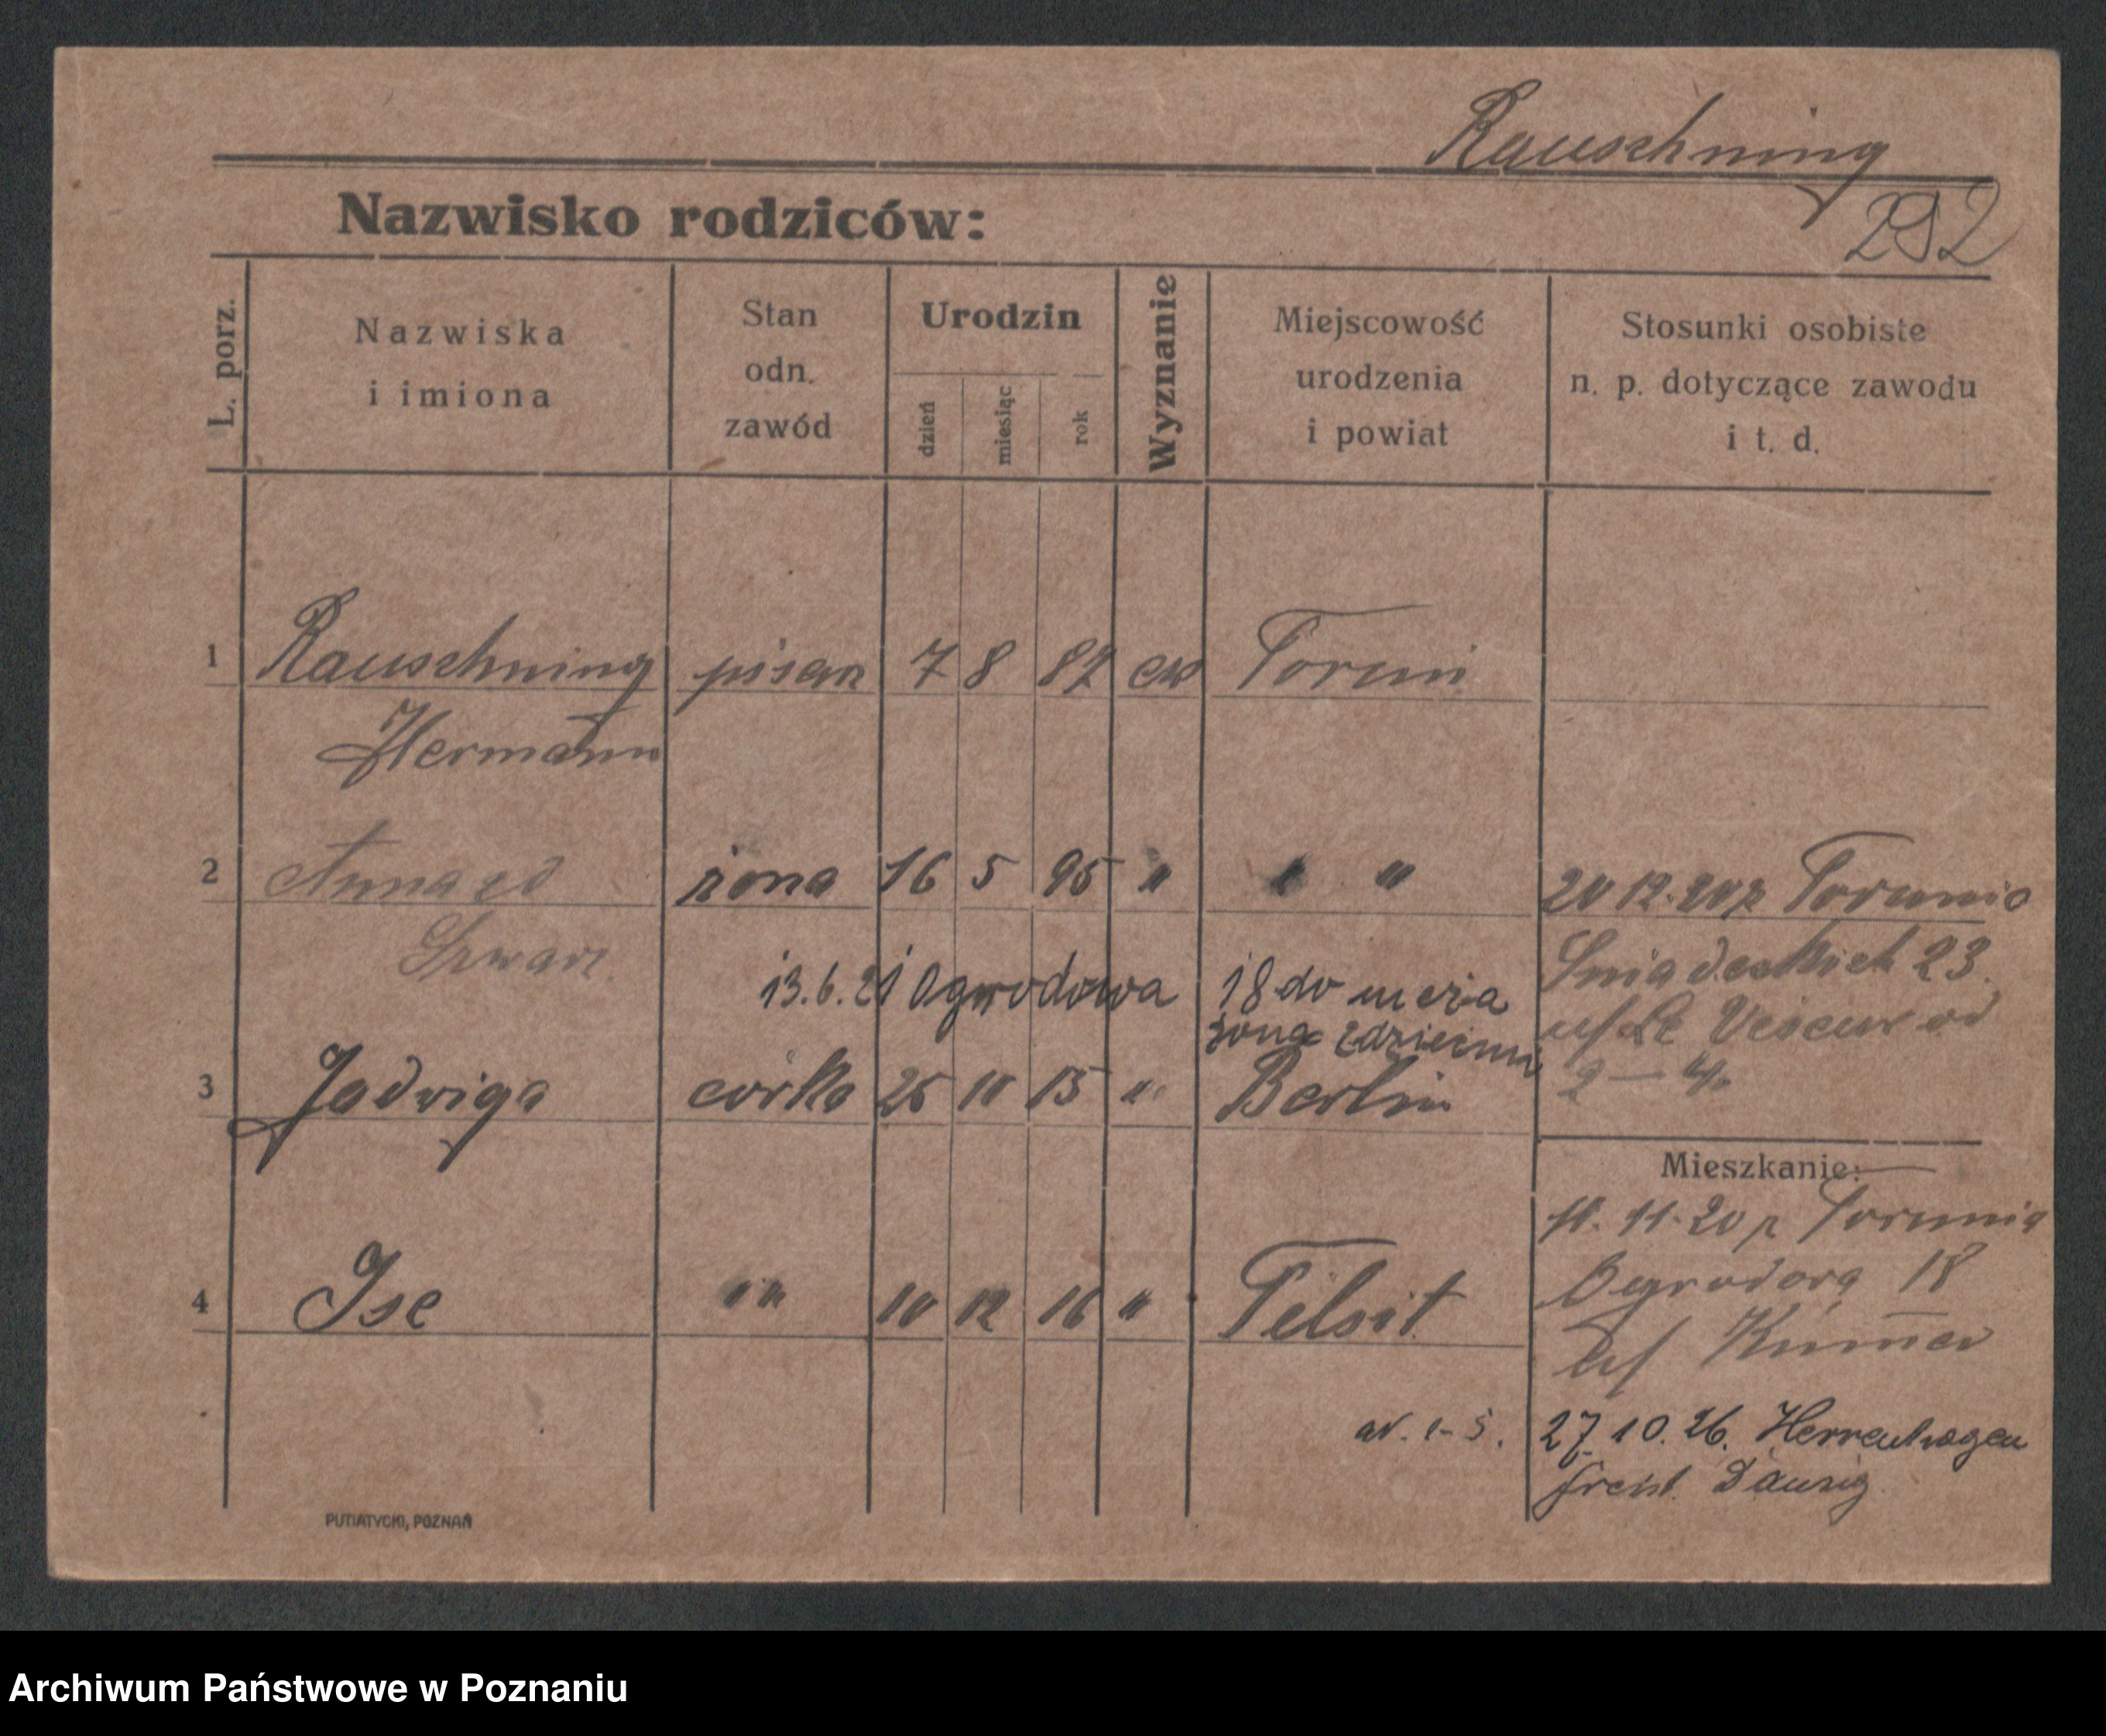 Rauschning
292
Nazwisko rodziców:
L. porz.
Nazwiska
i imiona
Stan
odn.
zawód
Urodzin
dzień
miesiąc
rok
Wyznanie
Miejscowość
urodzenia
i powiat
Stosunki osobiste
n. p. dotyczące zawodu
i t. d.
1 Rauschning pisarz 7 8 87 ew Toruń
Hermann
2 Anna zd żona 16 5 95 " " " 20 12.20 z Torunia
Szwarz
13.6.21 Ogrodowa 18 do męża
żona z dziećmi
Śniadeckich 23
u/
od
2 — 4
3 Jadwiga córka 25 10 15 " Berlin
Mieszkanie:
11.11.20 z Torunia
Ogrodowa 18
4 Ise " " 10 12 16 " Tilsit
u/
27.10.26. Herrenhagen
Freist. Danzig
PUTIATYCKI, POZNAŃ
Archiwum Państwowe w Poznaniu